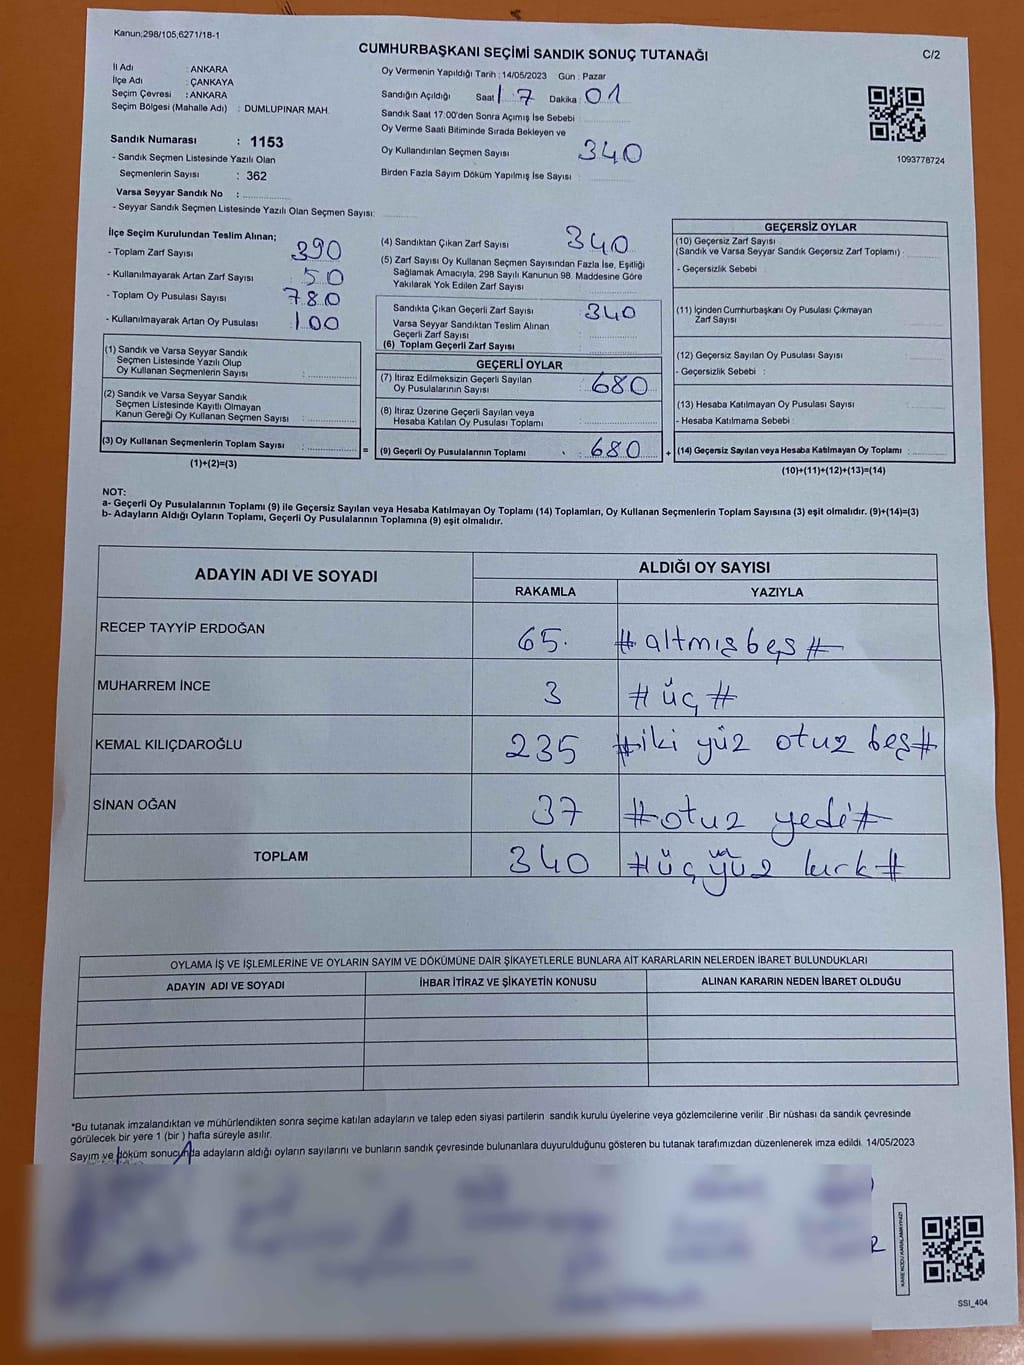 Kanun;298/105,6271/18-1
CUMHURBAŞKANI SEÇİMİ SANDIK SONUÇ TUTANAĞI
C/2
İl Adı : ANKARA
İlçe Adı : ÇANKAYA
Seçim Çevresi : ANKARA
Seçim Bölgesi (Mahalle Adı) : DUMLUPINAR MAH.
Sandık Numarası : 1153
- Sandık Seçmen Listesinde Yazılı Olan
Seçmenlerin Sayısı : 362
Varsa Seyyar Sandık No :
- Seyyar Sandık Seçmen Listesinde Yazılı Olan Seçmen Sayısı:
Oy Vermenin Yapıldığı Tarih : 14/05/2023 Gün : Pazar
Sandığın Açıldığı Saat 17 Dakika : 01
Sandık Saat 17:00'den Sonra Açımış İse Sebebi :
Oy Verme Saati Bitiminde Sırada Bekleyen ve
Oy Kullandırılan Seçmen Sayısı : 340
Birden Fazla Sayım Döküm Yapılmış İse Sayısı :
1093778724
İlçe Seçim Kurulundan Teslim Alınan;
- Toplam Zarf Sayısı : 390
- Kullanılmayarak Artan Zarf Sayısı : 50
- Toplam Oy Pusulası Sayısı : 780
- Kullanılmayarak Artan Oy Pusulası : 100
(1) Sandık ve Varsa Seyyar Sandık
Seçmen Listesinde Yazılı Olup
Oy Kullanan Seçmenlerin Sayısı :
(2) Sandık ve Varsa Seyyar Sandık
Seçmen Listesinde Kayıtlı Olmayan
Kanun Gereği Oy Kullanan Seçmen Sayısı :
(3) Oy Kullanan Seçmenlerin Toplam Sayısı :
(1)+(2)=(3)
(4) Sandıktan Çıkan Zarf Sayısı : 340
(5) Zarf Sayısı Oy Kullanan Seçmen Sayısından Fazla İse, Eşitliği
Sağlamak Amacıyla, 298 Sayılı Kanunun 98. Maddesine Göre
Yakılarak Yok Edilen Zarf Sayısı :
Sandıkta Çıkan Geçerli Zarf Sayısı : 340
Varsa Seyyar Sandıktan Teslim Alınan
Geçerli Zarf Sayısı :
(6) Toplam Geçerli Zarf Sayısı :
GEÇERLİ OYLAR
(7) İtiraz Edilmeksizin Geçerli Sayılan
Oy Pusulalarının Sayısı : 680
(8) İtiraz Üzerine Geçerli Sayılan veya
Hesaba Katılan Oy Pusulası Toplamı :
= (9) Geçerli Oy Pusulalarının Toplamı : 680
GEÇERSİZ OYLAR
(10) Geçersiz Zarf Sayısı
(Sandık ve Varsa Seyyar Sandık Geçersiz Zarf Toplamı) :
- Geçersizlik Sebebi :
(11) İçinden Cumhurbaşkanı Oy Pusulası Çıkmayan
Zarf Sayısı :
(12) Geçersiz Sayılan Oy Pusulası Sayısı :
- Geçersizlik Sebebi :
(13) Hesaba Katılmayan Oy Pusulası Sayısı :
- Hesaba Katılmama Sebebi :
+ (14) Geçersiz Sayılan veya Hesaba Katılmayan Oy Toplamı :
(10)+(11)+(12)+(13)=(14)
NOT:
a- Geçerli Oy Pusulalarının Toplamı (9) ile Geçersiz Sayılan veya Hesaba Katılmayan Oy Toplamı (14) Toplamları, Oy Kullanan Seçmenlerin Toplam Sayısına (3) eşit olmalıdır. (9)+(14)=(3)
b- Adayların Aldığı Oyların Toplamı, Geçerli Oy Pusulalarının Toplamına (9) eşit olmalıdır.
ADAYIN ADI VE SOYADI ALDIĞI OY SAYISI
RAKAMLA YAZIYLA
RECEP TAYYİP ERDOĞAN 65. #altmış beş#
MUHARREM İNCE 3 #üç#
KEMAL KILIÇDAROĞLU 235 #iki yüz otuz beş#
SİNAN OĞAN 37 #otuz yedi#
TOPLAM 340 #üç yüz kırk#
OYLAMA İŞ VE İŞLEMLERİNE VE OYLARIN SAYIM VE DÖKÜMÜNE DAİR ŞİKAYETLERLE BUNLARA AİT KARARLARIN NELERDEN İBARET BULUNDUKLARI
ADAYIN ADI VE SOYADI İHBAR İTİRAZ VE ŞİKAYETİN KONUSU ALINAN KARARIN NEDEN İBARET OLDUĞU
*Bu tutanak imzalandıktan ve mühürlendikten sonra seçime katılan adayların ve talep eden siyasi partilerin sandık kurulu üyelerine veya gözlemcilerine verilir .Bir nüshası da sandık çevresinde
görülecek bir yere 1 (bir ) hafta süreyle asılır.
Sayım ve döküm sonucunda adayların aldığı oyların sayılarını ve bunların sandık çevresinde bulunanlara duyurulduğunu gösteren bu tutanak tarafımızdan düzenlenerek imza edildi. 14/05/2023
KARE KODU KARALAMAYINIZ!
SSI_404